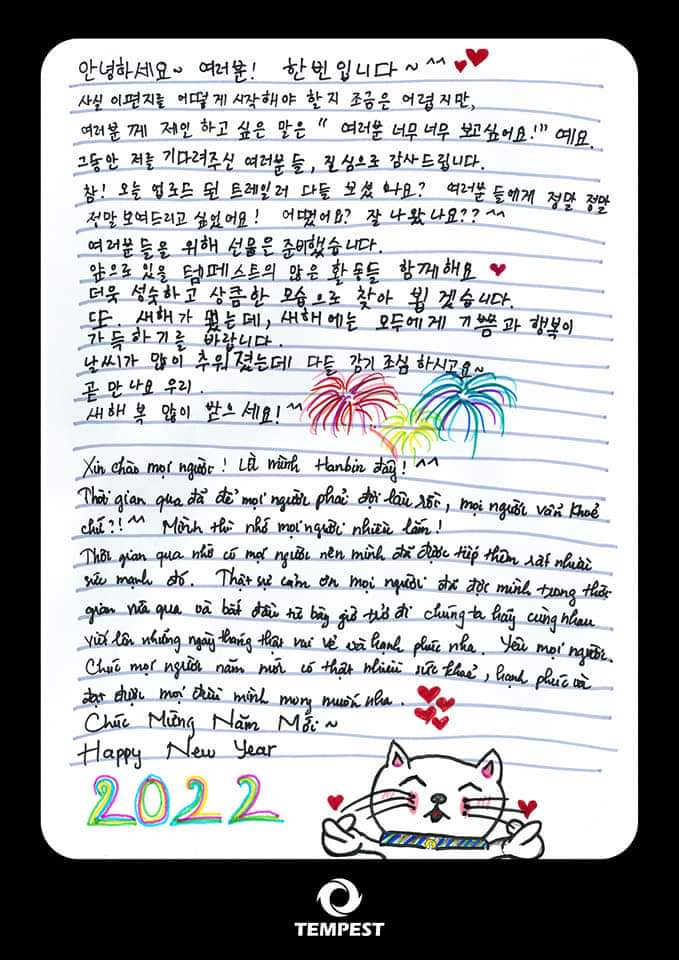 안녕하세요~ 여러분! 한빈입니다~ ^^
사실 이편지를 어떻게 시작해야 할지 조금은 어렵지만,
여러분께 제일 하고 싶은 말은 " 여러분 너무너무 보고싶어요!" 예요.
그동안 저를 기다려주신 여러분들, 진심으로 감사드립니다.
참! 오늘 업로드 된 트레일러 다들 보셨나요? 여러분들에게 정말 정말
정말 보여드리고 싶었어요! 어땠어요? 잘 나왔나요?? ^^
여러분들을 위해 선물은 준비했습니다.
앞으로 있을 템페스트의 많은 활동들 함께해요
더욱 성숙하고 상큼한 모습으로 찾아 뵙겠습니다.
또. 새해가 됐는데, 새해에는 모두에게 기쁨과 행복이
가득하기를 바랍니다.
날씨가 많이 추워졌는데 다들 감기 조심 하시고요~
곧 만나요 우리.
새해 복 많이 받으세요! ^^
Xin chào mọi người! Là mình Hanbin đây! ^^
Thời gian qua đã để mọi người phải đợi lâu rồi, mọi người vẫn khoẻ
chứ?! ^^ Mình thì nhớ mọi người nhiều lắm!
Thời gian qua nhờ có mọi người nên mình đã được tiếp thêm rất nhiều
sức mạnh đó. Thật sự cảm ơn mọi người đã đợi mình trong thời
gian vừa qua và bắt đầu từ bây giờ trở đi chúng ta hãy cùng nhau
viết lên những ngày tháng thật vui vẻ và hạnh phúc nha. Yêu mọi người.
Chúc mọi người năm mới có thật nhiều sức khoẻ, hạnh phúc và
đạt được mọi điều mình mong muốn nha.
Chúc Mừng Năm Mới ~
Happy New Year
2022
TEMPEST